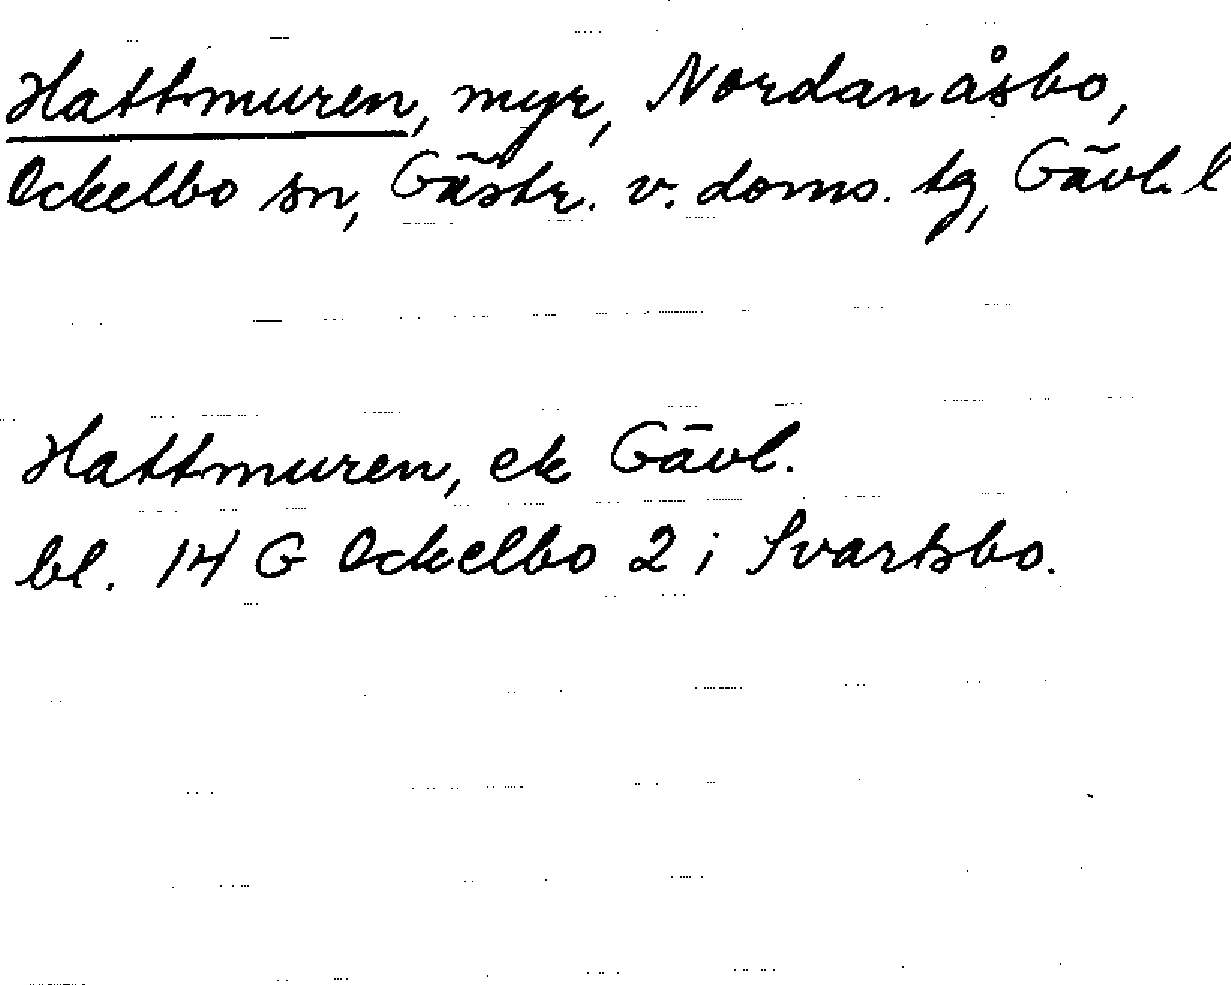 Hattmuren, myr, Nordanåsbo,
Ockelbo sn, Gästr. v. doms. tg, Gävl. l
Hattmuren, ek Gävl.
bl. 14 G Ockelbo 2 i Svartsbo.